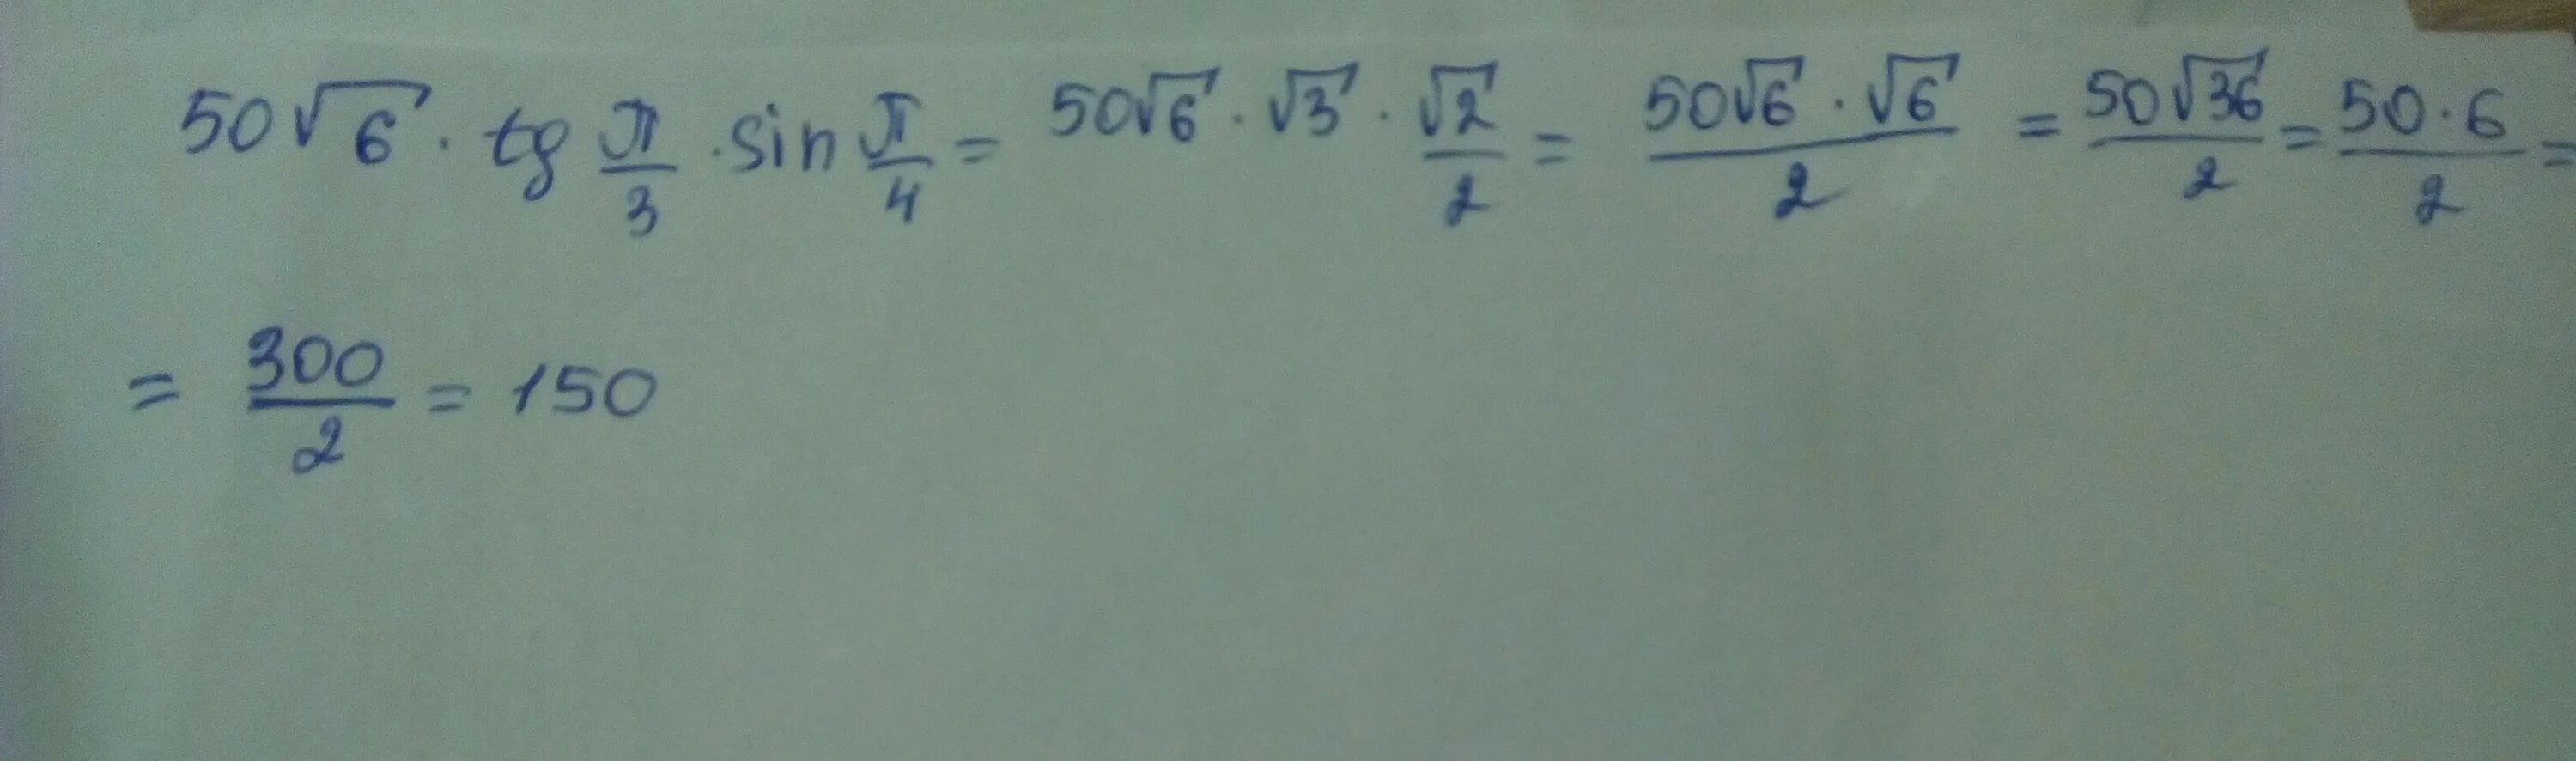 50√6 · tg π/3 · sin π/4 = 50√6 · √3 · √2/2 = 50√6 · √6/2 = 50√36/2 = 50 · 6/2 =
= 300/2 = 150